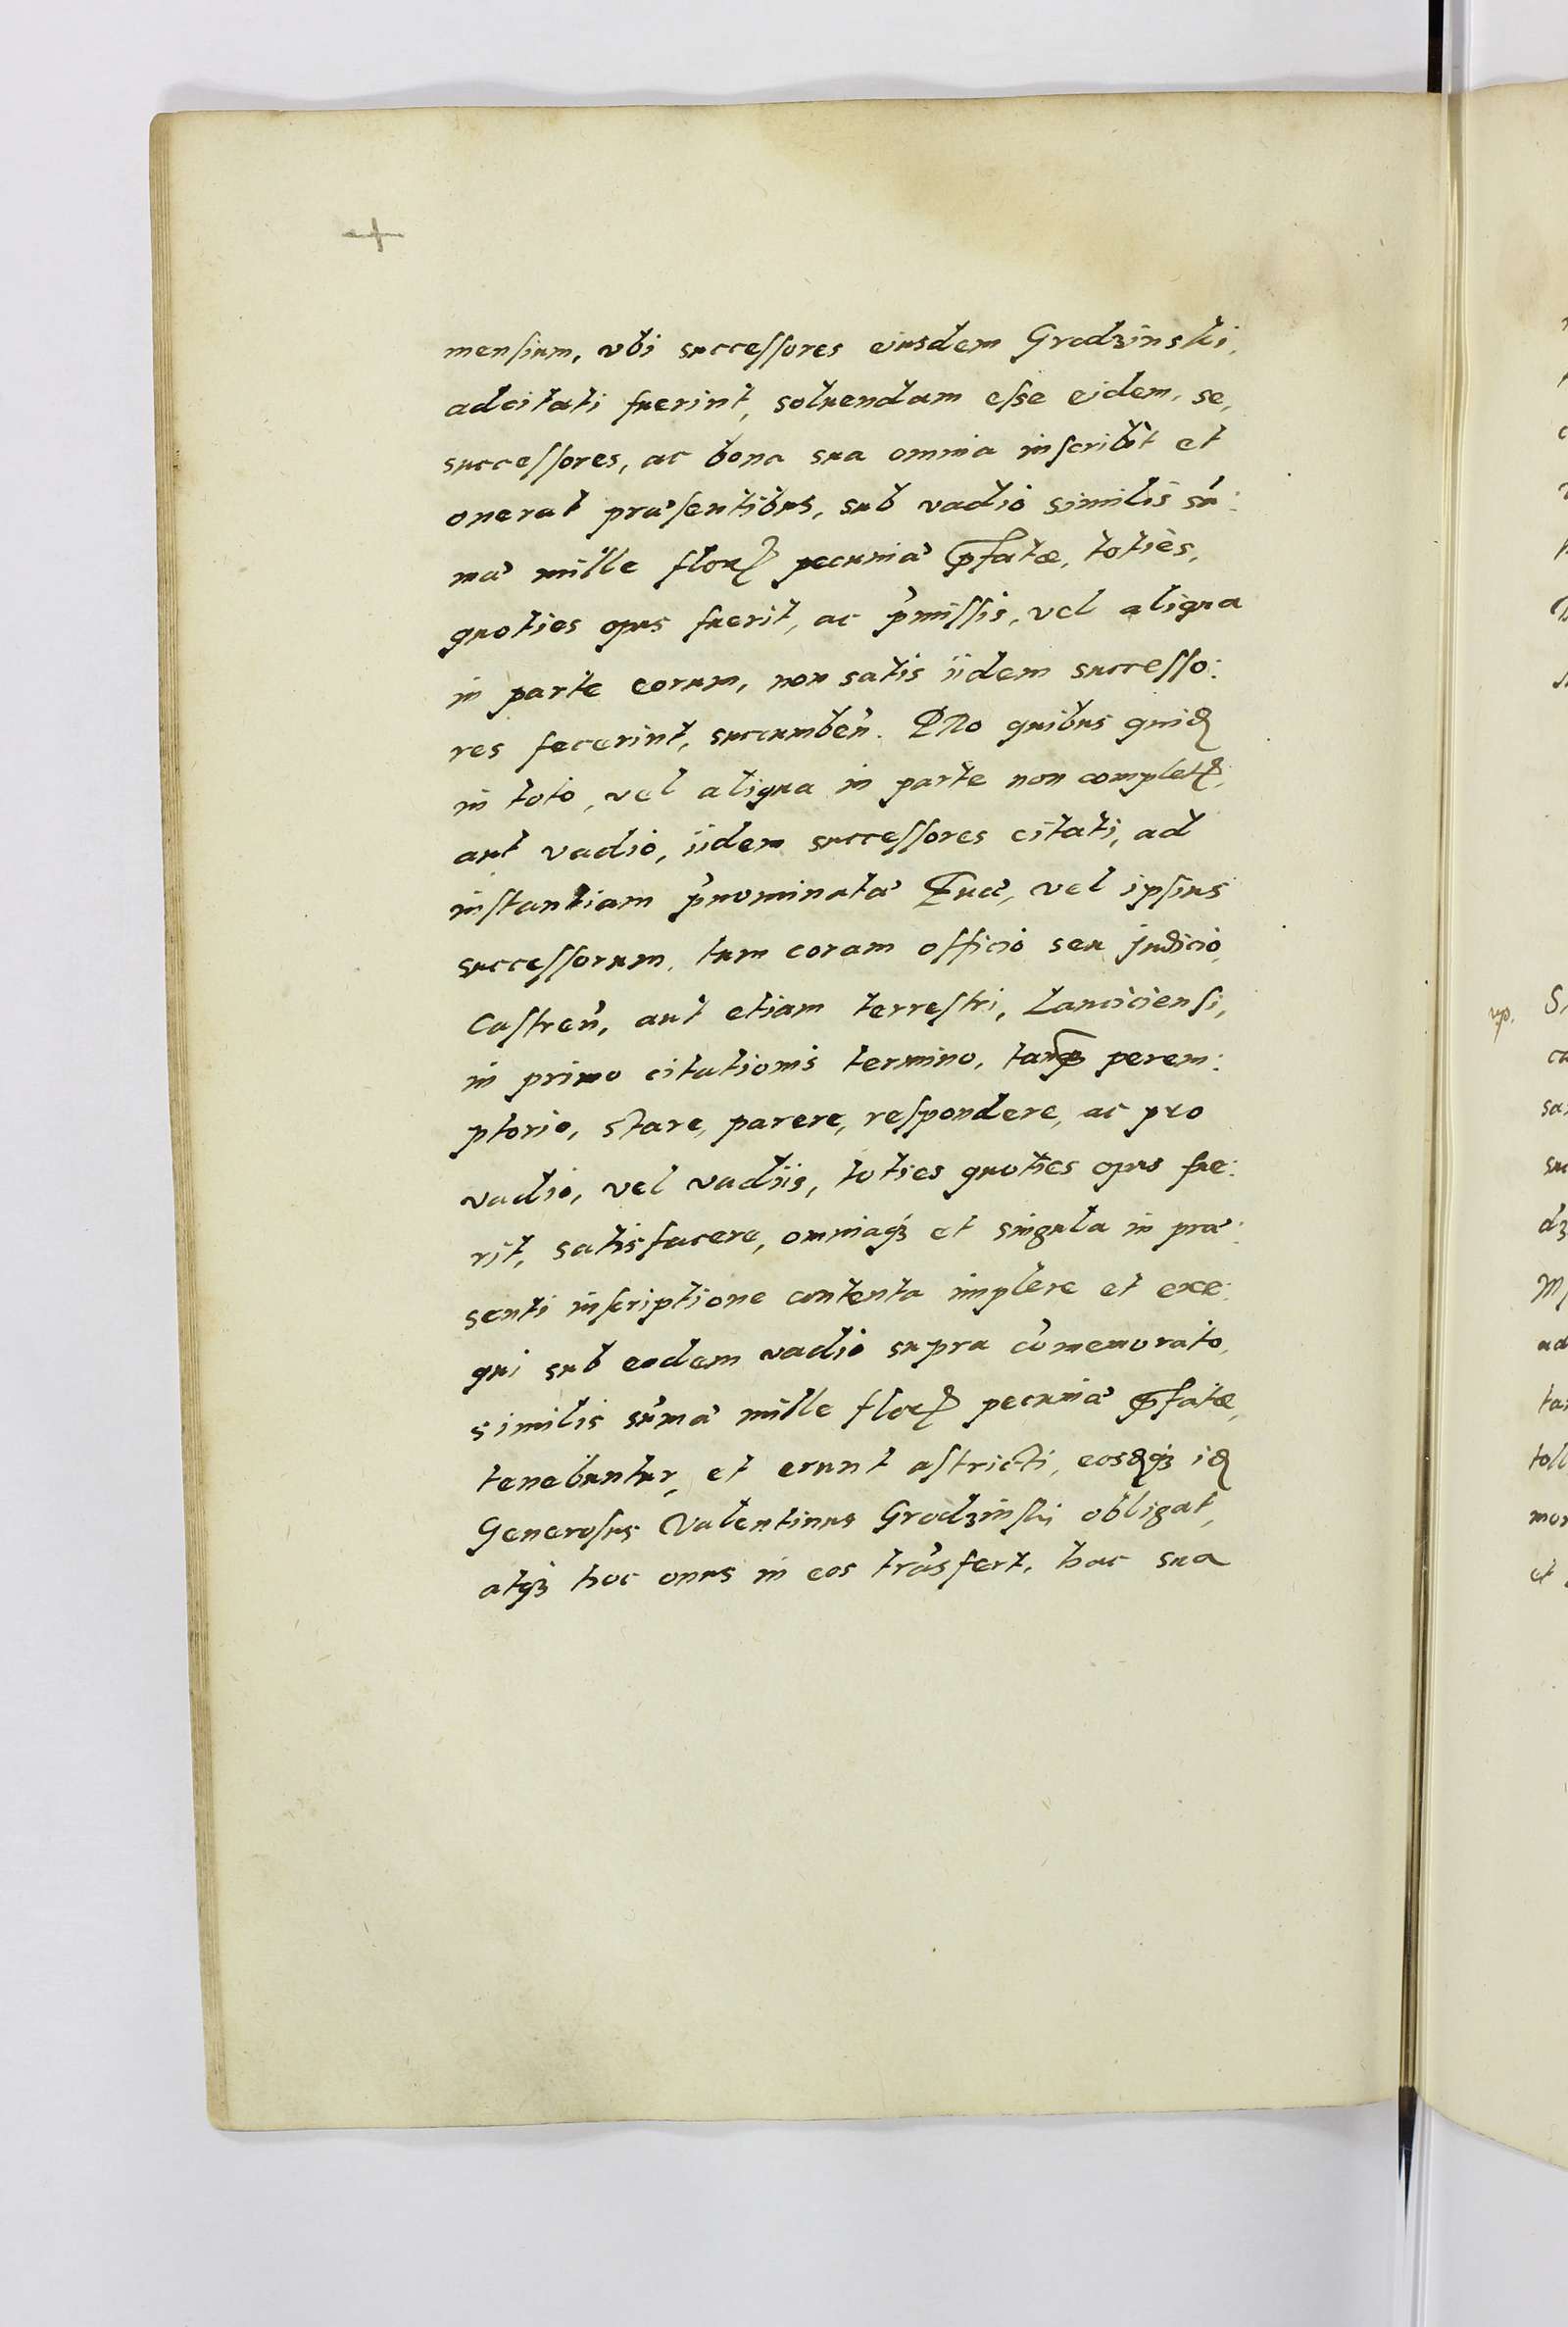 menſium, vbi succeſſores eiusdem Grodzinski,
adcitati fuerint, soluendam eſse eidem, se,
succeſſores, ac bona sua omnia inſcribit et
onerat præſentibus, sub vadio similis sū:
mæ mille florꝝ pecuniæ p̄fatæ, totiès,
quoties opus fuerit, ac p̄miſſis, vel aliqua
in parte eorum, non satis iidem succeſſo:
res fecerint, succumbeñ. PRo quibus quidꝫ
in toto, vel aliqua in parte non completꝭ,
aut vadio, iidem succeſſores citati, ad
inſtantiam p̄nominatæ vel ipſius
succeſſorum, tum coram officio seu judicio,
Caſtreñ, aut etiam terreſtri, Lanciciensi,
in primo citationis termino, tanꝙ perem:
ptorio, stare, parere, reſpondere, ac pro
vadio, vel vadiis, toties quoties opus fue:
rit, satisfacere, omniaqꝫ et singula in præ:
senti inſcriptione contenta implere et exe:
qui sub eodem vadio supra cōmemorato,
similis sūmæ mille florꝝ pecuniæ p̄fatæ,
tenebuntur, et erunt aſtricti, eosdꝫqꝫ idꝫ
Generoſus Valentinus Grodzinſki obligat,
atqꝫ hoc onus in eos trāsfert, hac sua